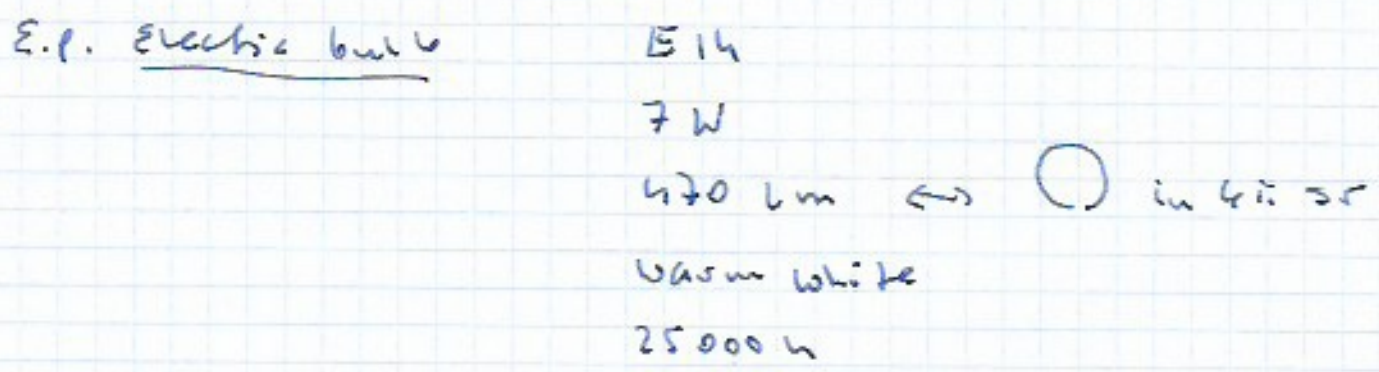 E.p. Electric bulb E14
7 W
470 lm ⇔ ◯ in
warm white
25000 h